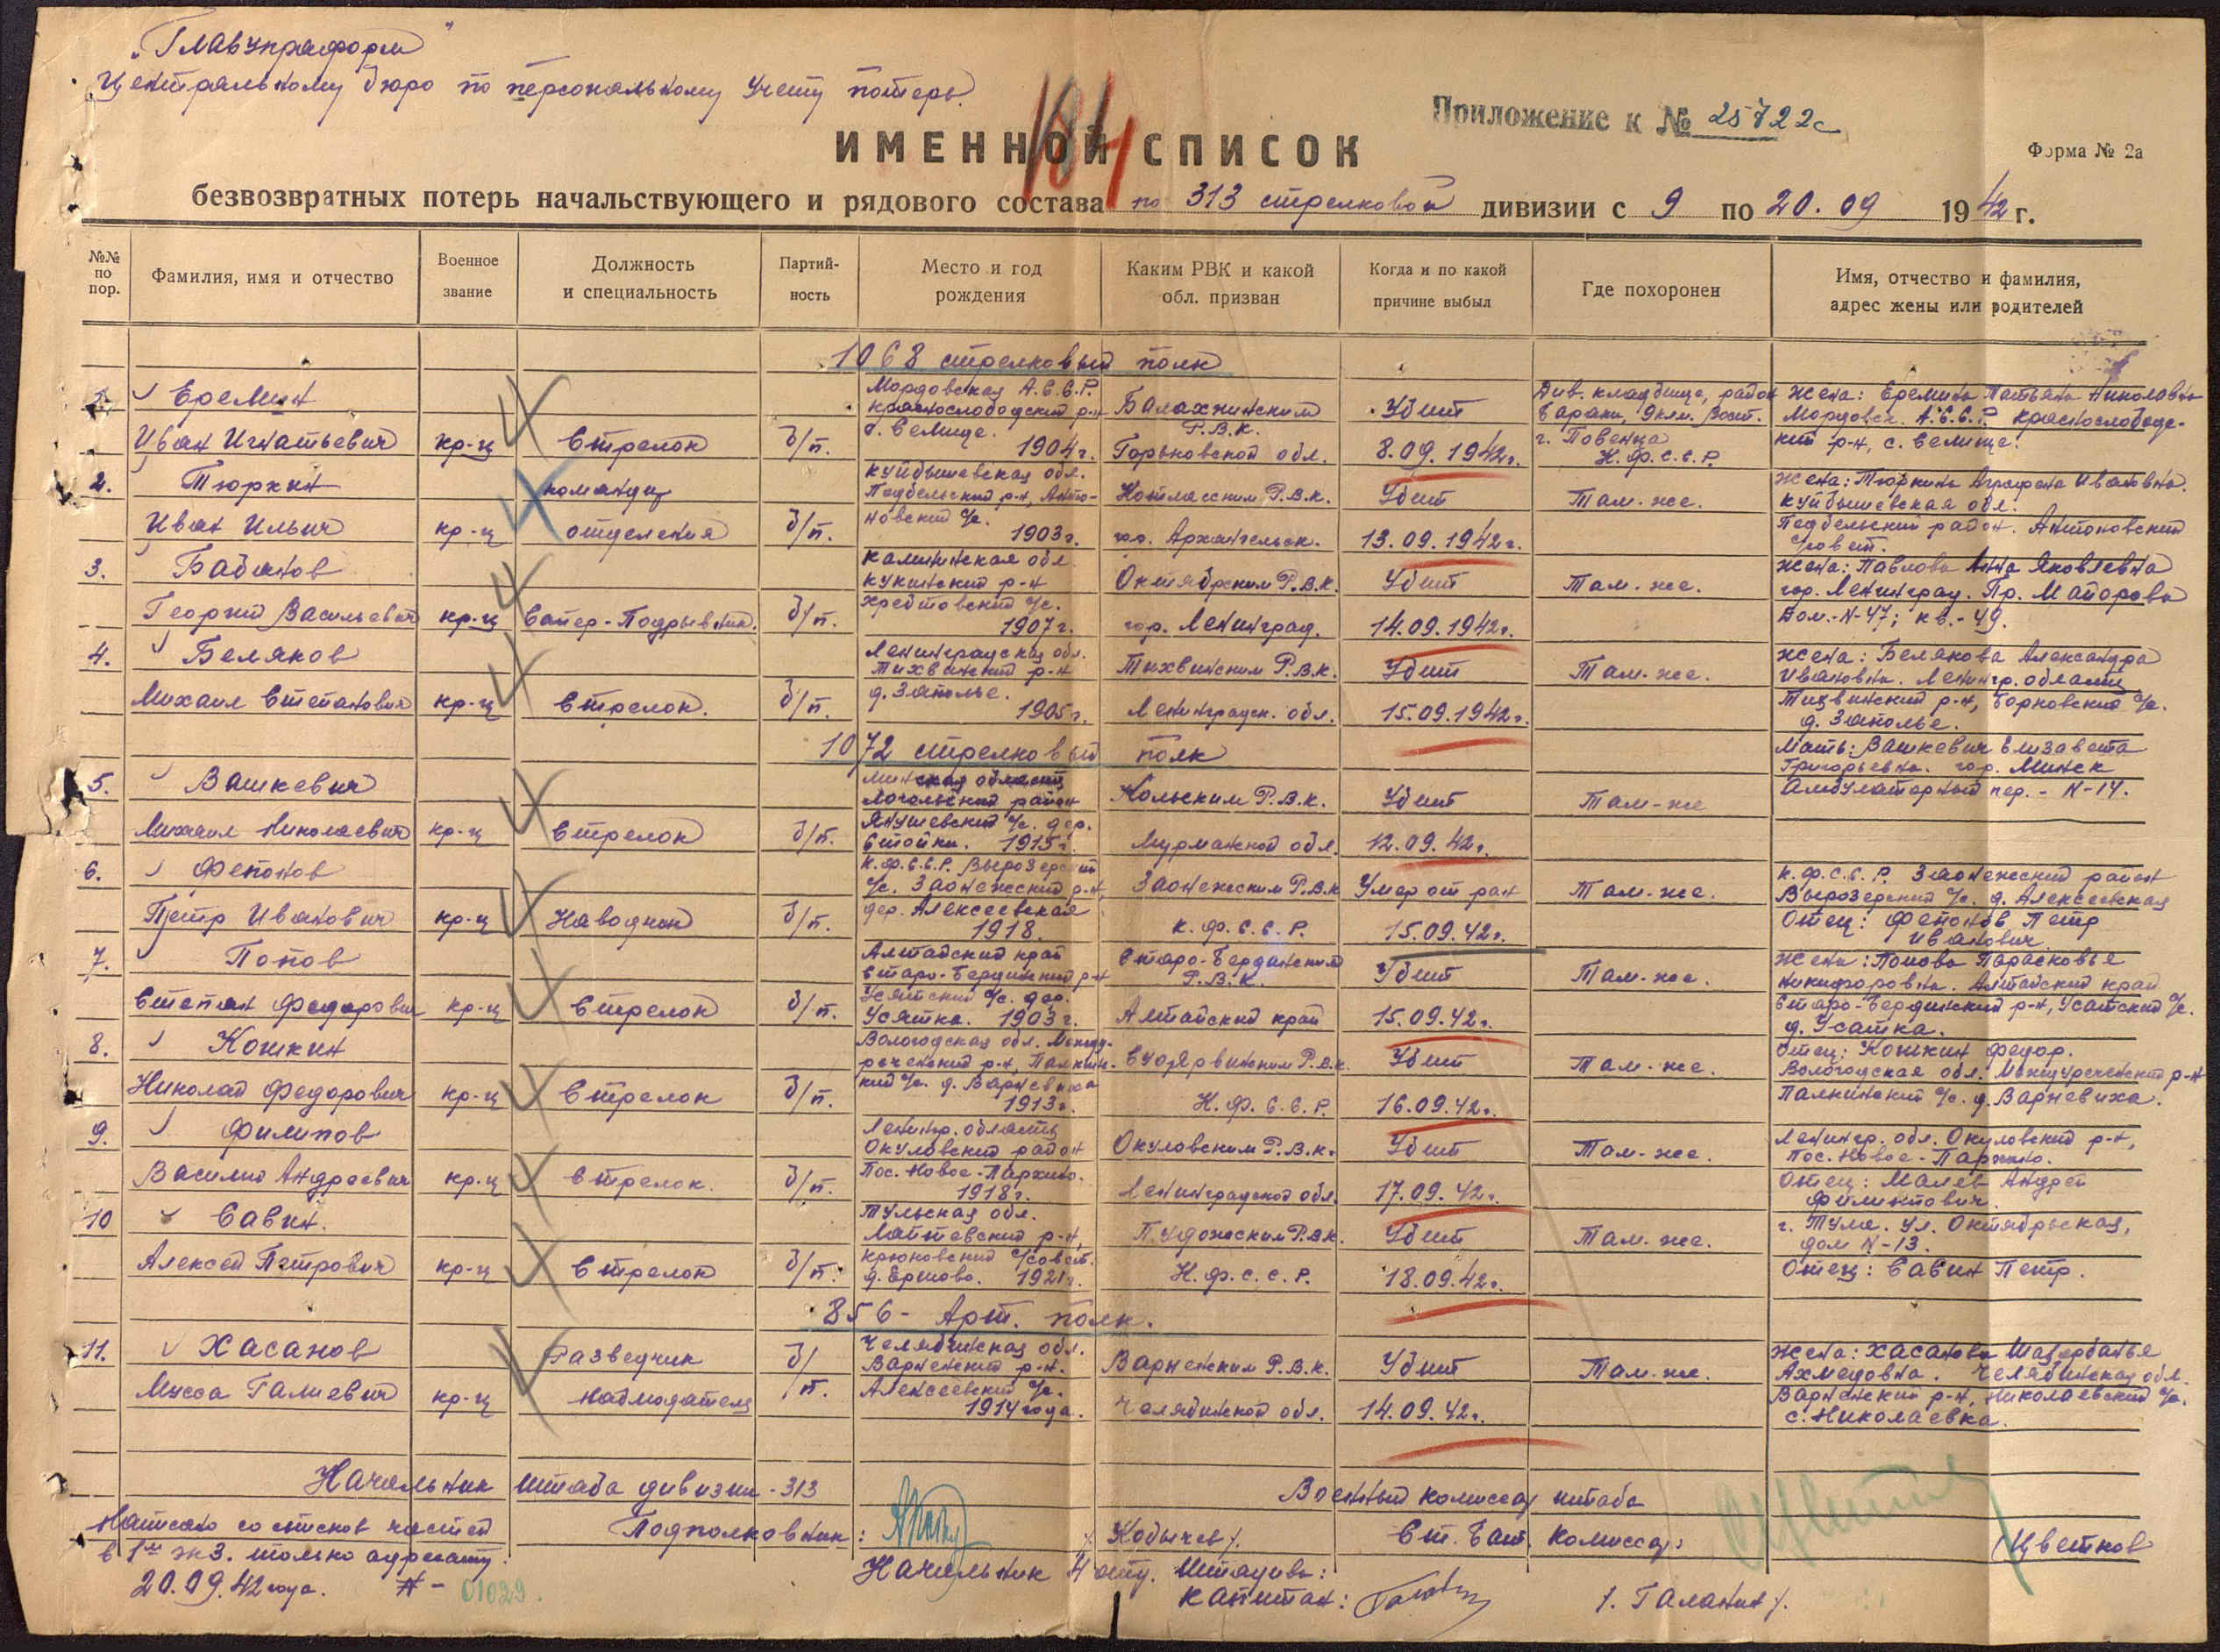 "Главупраформ"
Центральному бюро по персональному учету потерь.
181
Приложение к № 25722с
ИМЕННОЙ СПИСОК
Форма № 2а
безвозвратных потерь начальствующего и рядового состава по 313 стрелковой дивизии с 9 по 20.09 1942 г.
№№ по пор.
Фамилия, имя и отчество
Военное звание
Должность и специальность
Партий-ность
Место и год рождения
Каким РВК и какой обл. призван
Когда и по какой причине выбыл
Где похоронен
Имя, отчество и фамилия, адрес жены или родителей
1068 стрелковый полк
1. Еремин
Иван Игнатьевич
кр-ц
Стрелок
б/п.
Мордовская А.С.С.Р.
Краснослободский р-н
с. Селище.
1904г.
Балахнинским
Р.В.К.
Горьковской обл.
Убит
8.09.1942г.
Див. кладбище, район
Бараки, 9км. Вост.
г. Повенца
К.Ф.С.С.Р.
Жена: Еремина Татьяна Николовна
Мордовск. А.С.С.Р. Краснослободс-
кий р-н, с. Селище.
2. Тюркин
Иван Ильич
кр-ц
командир
отделения
б/п.
Куйбышевская обл.
Подбельский р-н, Анто-
новский с/с.
1903г.
Котласским Р.В.К.
гор. Архангельск.
Убит
13.09.1942г.
Там-же.
Жена: Тюркина Аграфена Ивановна.
Куйбышевская обл.
Подбельский район. Антоновский
с/совет.
3. Бабанов
Георгий Васильевич
кр-ц
Сапер-Подрывник.
б/п.
Калининская обл.
р-н
с/с.
1907г.
Октябрским Р.В.К.
гор. Ленинград.
Убит
14.09.1942г.
Там-же.
Жена: Павлова Анна Яковлевна
гор. Ленинград. Пр. Майорова
Дом.-N-47; кв.-49.
4. Беляков
Михаил Степанович
кр-ц
Стрелок.
б/п.
Ленинградская обл.
Тихвинский р-н
д. Заполье.
1905г.
Тихвинским Р.В.К.
Ленинградск. обл.
Убит
15.09.1942г.
Там-же.
Жена: Белякова Александра
Ивановна. Ленингр. область
Тихвинский р-н, Борковский с/с.
д. Заполье.
1072 стрелковый полк
5. Вашкевич
Михаил Николаевич
кр-ц
Стрелок
б/п.
Минская область
район
Янушевский с/с. дер.
Стайки. 1915г.
Кольским Р.В.К.
Мурманской обл.
Убит
12.09.42г.
Там-же
Мать: Вашкевич Елизавета
Григорьевна. гор. Минск
Амбулаторный пер.-N-14.
6. Фепонов
Петр Иванович
кр-ц
Наводчик
б/п.
К.Ф.С.С.Р. Вырозерский
с/с. Заонежский р-н,
дер. Алексеевская
1918.
Заонежским Р.В.К
К.Ф.С.С.Р.
Умер от ран
15.09.42г.
Там-же.
К.Ф.С.С.Р. Заонежский район
Вырозерский с/с. д. Алексеевская
Отец: Фепонов Петр
Иванович.
7. Попов
Степан Федорович
кр-ц
Стрелок
б/п.
Алтайский край
Старо-Бардинский р-н
Усятский с/с. дер.
Усятка. 1903г.
Старо-Бардинский
Р.В.К.
Алтайский край
Убит
15.09.42г.
Там-же.
Жена: Попова Парасковье
Никифоровна. Алтайский край
Старо-Бардинский р-н, Усатский с/с.
д. Усатка.
8. Кошкин
Николай Федорович
кр-ц
Стрелок
б/п.
Вологодская обл. Между-
реченский р-н, Палкин-
кий с/с. д. Варневиха
1913г.
Р.В.К.
К.Ф.С.С.Р.
Убит
16.09.42г.
Там-же.
Отец: Кошкин Федор.
Вологодская обл. Междуреченский р-н
Палкинский с/с. д. Варневиха.
9. Филипов
Василий Андреевич
кр-ц
Стрелок.
б/п.
Ленингр. область
Окуловский район
Пос. Новое-Пархино.
1918г.
Окуловским Р.В.К.
Ленинградской обл.
Убит
17.09.42г.
Там-же.
Ленингр. обл. Окуловский р-н,
Пос. Новое-Пархино.
Отец: Малев Андрей
Филиппович.
10 Савин.
Алексей Петрович
кр-ц
Стрелок
б/п.
Тульская обл.
р-н,
Крюковский с/совет.
д. Ершово. 1921г.
Пудожским Р.В.К.
К.Ф.С.С.Р.
Убит
18.09.42г.
Там-же.
г. Тула. Ул. Октябрьская,
дом N-13.
Отец: Савин Петр.
856- Арт. полк.
11. Хасанов
Мусса Галиевич
кр-ц
Разведчик
наблюдатель
б/п.
Челябинская обл.
Варненский р-н.
Алексеевский с/с.
1914года.
Варненским Р.В.К.
Челябинской обл.
Убит
14.09.42г.
Там-же.
Жена: Хасанова
Ахмедовна. Челябинская обл.
Варненский р-н, Николаевский с/с.
с. Николаевка.
Начальник штаба дивизии-313
Подполковник: /Кобычев/.
Военный комиссар штаба
Ст. Бат. Комиссар: /Цветков
Написано со списков частей
в 1м экз. только адресату.
20.09.42года. N-
01029.
Начальник 4 отд. Штадива:
Капитан: /. Галанин/.